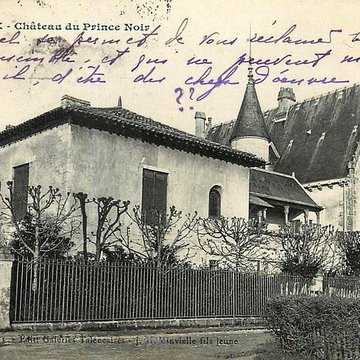 - Château du Prince Noir
se permet de vous réclamer
et qui ne peuvent
d'être des chefs d'oeuvre
??
1 - Edit Galeries Talençaises - J. H. Vinvielle fils jeune